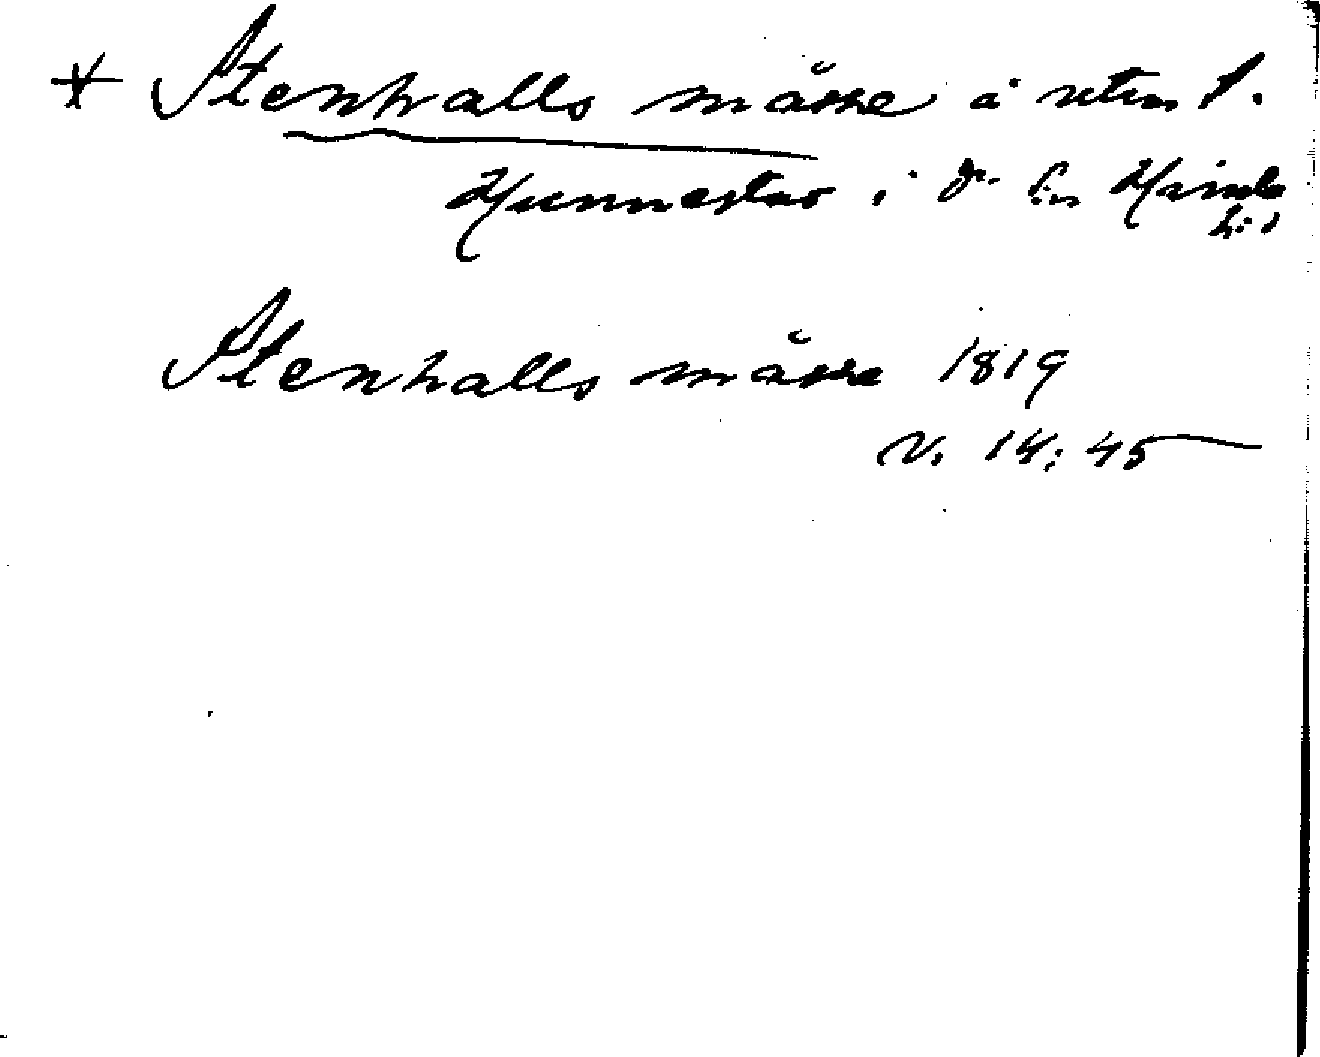 * Stenhalls måsse å utm 1.
Hunnestad i d:o sn Himle
hd
Stenhalls måsse 1819
V. 14:45